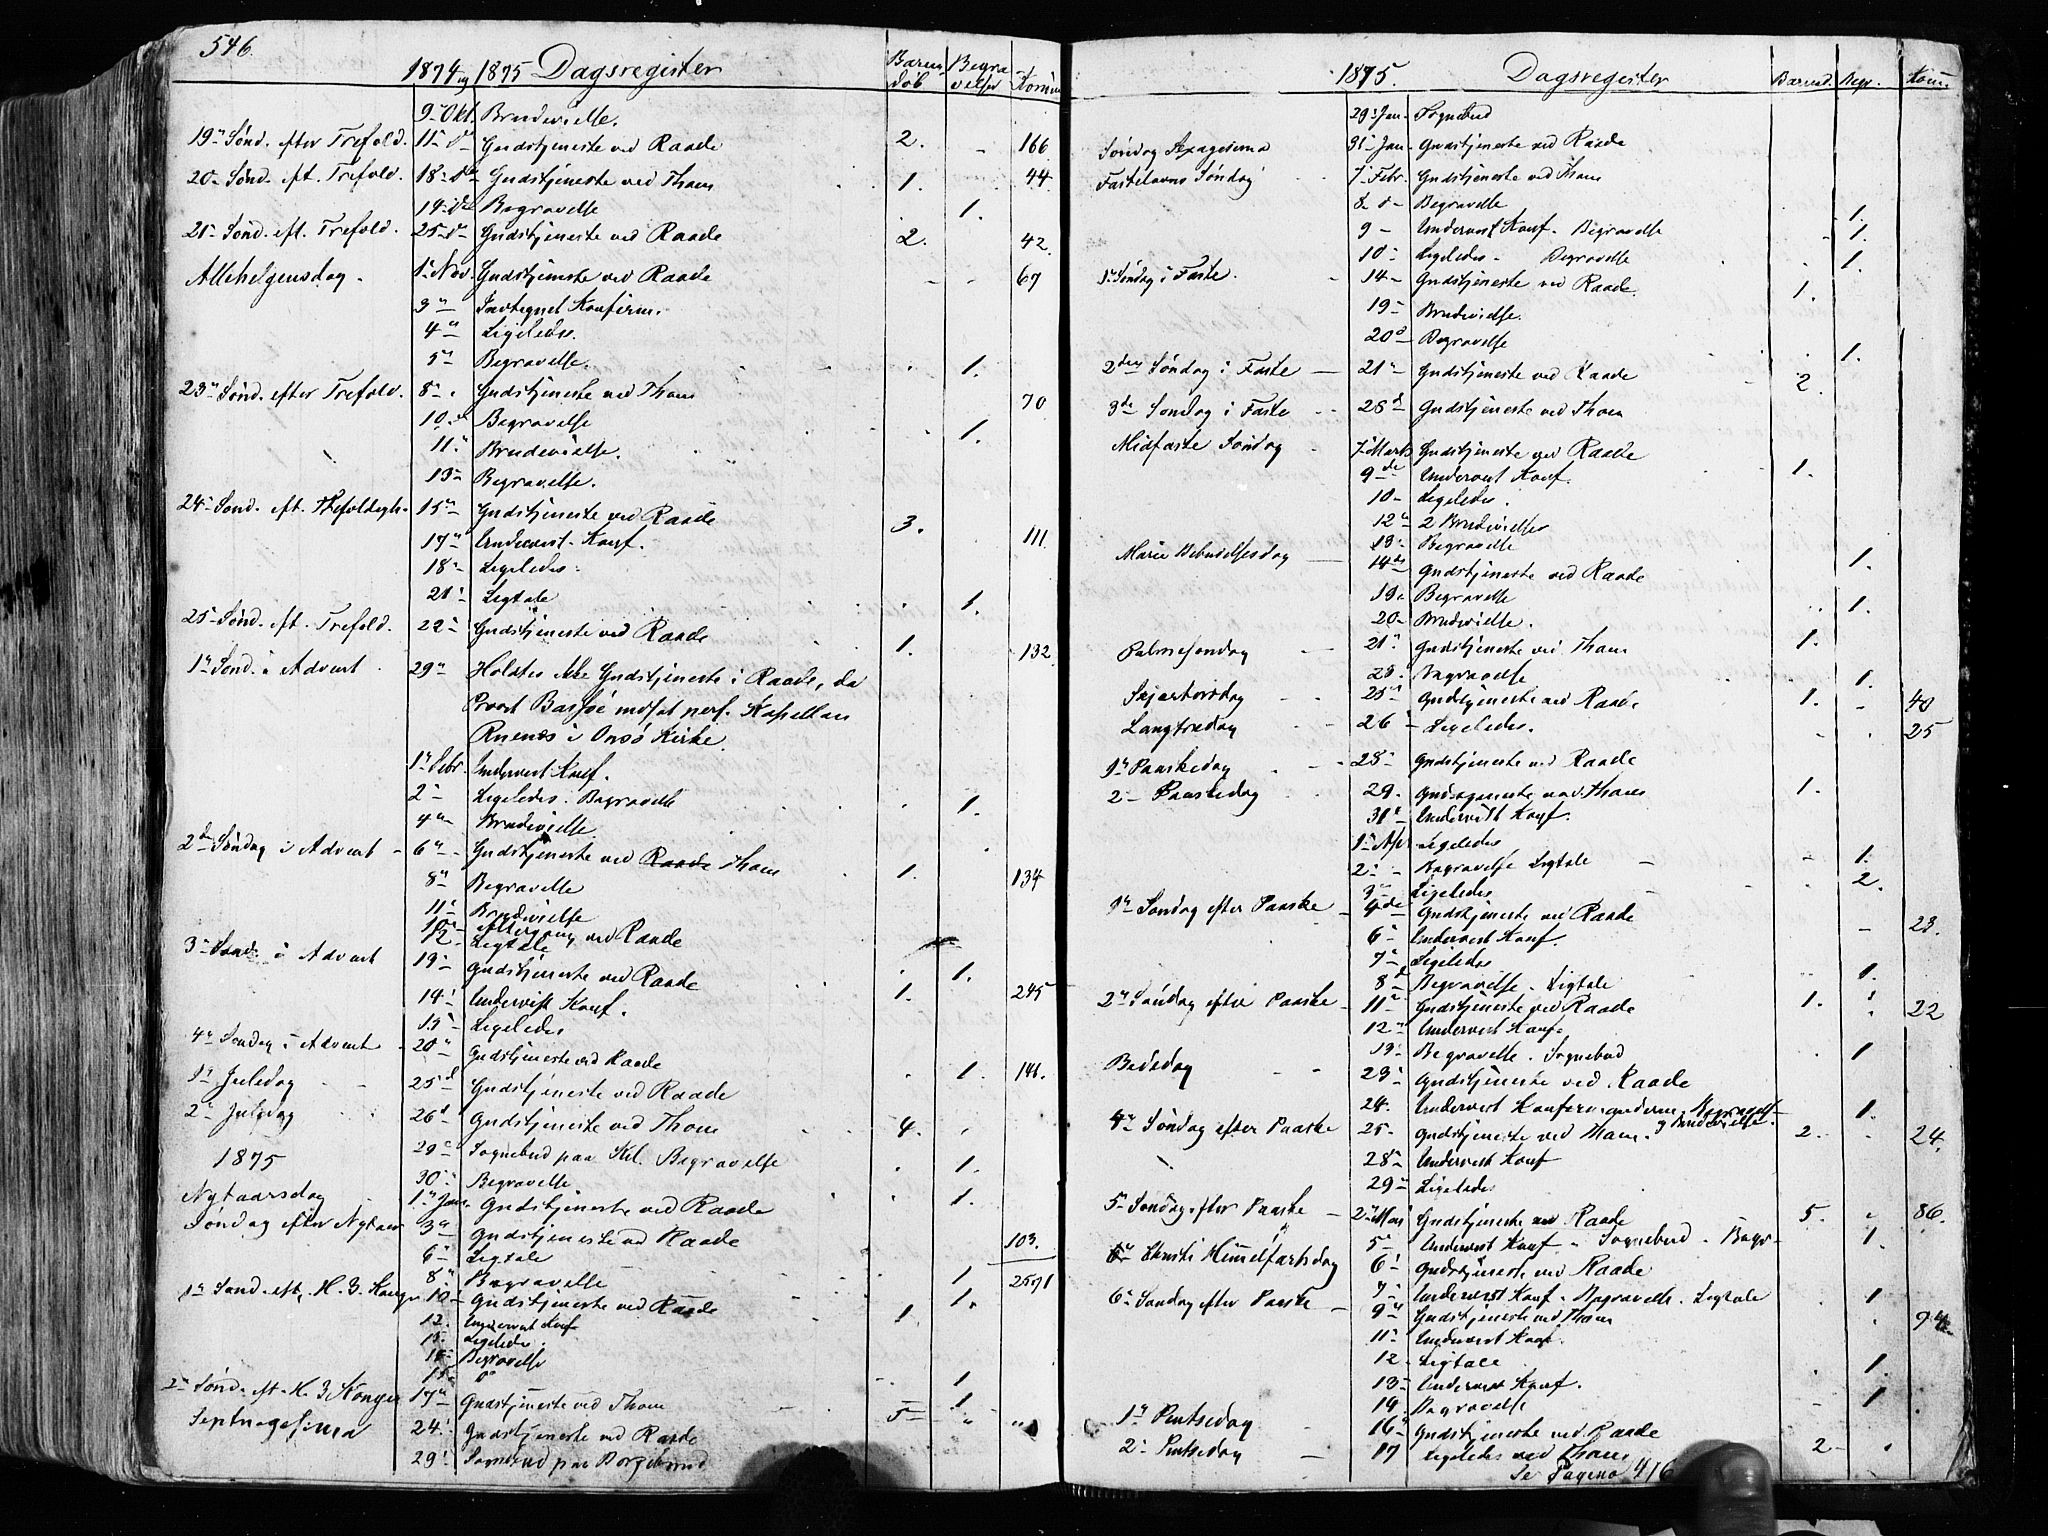 546.
1874 og 1875 Dagsregister Barne døb Begra velser Komm
9 Okt. Brudevielse.
19 Sønd. efter Trefold. 11 d Gudstjeneste ved Raade 2. - 166
20 Sønd. eft. Trefold. 18 d Gudstjeneste ved Thom 1. 44
14 d Begravelse 1.
21 Sønd. eft. Trefold. 25 d Gudstjeneste ved Raade 2. 42
Allehelgensdag 1 Nov. Gudstjeneste ved Raade - - 67
3 Indtegnet Konfirm.
4 Ligeledes.
5 Begravelse. 1.
23 Sønd. efter Trefold. 8 Gudstjeneste ved Thom 70
10 Begravelse 1.
11 Brudevielse.
13 Begravelse.
24 Sønd. eft. Trefoldigh. 15 Gudstjeneste ved Raade 3. 111
17 Undervist Konf.
18 Ligeledes
21 Ligtale 1.
25 Sønd. eft. Trefold. 22 Gudstjeneste ved Raade 1. 132
1 Sønd. i Advent 29 Holdtes ikke Gudstjeneste i Raade, da
Provst Bassøe indsat pers. Kapellan
i Onsø Kirke.
1 Undervist Konf.
2 Ligeledes. Begravelse 1.
4 Brudevielse
2den Søndag i Advent 6 Gudstjeneste ved Raade Thom 1. 134
8 Begravelse
11 Brudevielse
12 Ligtale ved Raade
3 Sønd. i Advent 13 Gudstjeneste ved Raade 1. 245
14 Undervist Konf.
15 Ligeledes
4 Søndag i Advent 20 Gudstjeneste ved Raade 1. 146.
1 Juledag 25 Gudstjeneste ved Raade
2 Juledag 26 Gudstjeneste ved Thom 4.
1875 29 Sognebud paa Begravelse 1.
30 Begravelse 1.
Nytaarsdag 1 Jan. Gudstjeneste ved Raade
Søndag efter Nytaar 3 Gudstjeneste ved Raade 103.
6 Ligtale
8 Begravelse 1 2571
1 Sønd. eft. H. 3 Konger 10 Gudstjeneste ved Raade 1.
12. Undervist Konf
13. Ligeledes
Begravelse
15 d 1
2 Sønd. eft. H. 3 Konger 17 Gudstjeneste ved Thom 5
Septuagesima 24 Gudstjeneste ved Raade
29 Sognebud paa
1875. Dagsregister Barned. Begr. Kom.
29 Jan. Sognebud
Søndag Sexagesima 31 Jan. Gudstjeneste ved Raade
Fastelavns Søndag 7 Febr. Gudstjeneste ved Thom
8 d Begravelse 1.
9 Undervist Konf. Begravelse 1.
10 Ligeledes - Begravelse 1.
1 Søndag i Faste. 14 Gudstjeneste ved Raade. 1.
19 Brudevielse.
20 Begravelse 1.
2den Søndag i Faste 21 Gudstjeneste ved Raade 2.
3de Søndag i Faste 28 Gudstjeneste ved Thom
Midfaste Søndag 7 Marts Gudstjeneste ved Raade 1.
9de Undervist Konf.
10 Ligeledes
12 2 Brudevielser
13 Begravelse 1.
Mariæ Bebudelsesdag 14de Gudstjeneste ved Raade
19 Begravelse 1.
20 Brudevielse.
Palmesøndag 21 Gudstjeneste ved Thom 1.
23 Begravelse 1.
Skjærtorsdag 25 Gudstjeneste ved Raade 1. - 40
Langfredag 26 Ligeledes. 25
1 Paaskedag 28 Gudstjeneste ved Raade
2 Paaskedag 29. Gudstjeneste ved Thom 1.
31 Undervist Konf.
1 Apr. Ligeledes
2 Begravelse Ligtale 1.
3 Ligeledes 2.
1 Søndag efter Paaske 4de Gudstjeneste ved Raade 23.
6 Undervist Konf.
7 Ligeledes
8 Begravelse. Ligtale 1.
2 Søndag efter Paaske 11 Gudstjeneste ved Raade 1. 22
12 Undervist Konf
19 Begravelse. Sognebud 1
Bededag 23 Gudstjeneste ved Raade
24. Undervist Konfirmanderne. Begravelse 1.
og Brudevielse.
4 Søndag efter Paaske 25. Gudstjeneste ved Thom 2. 24.
28 Undervist Konf
29 Ligeledes
5 Søndag efter Paaske 2 Mai Gudstjeneste ved Raade 5. 86.
5 Undervist Konf - Sognebud - Begr. 1.
Christi Himmelfartsdag 6 Gudstjeneste ved Raade
7 Undervist Konf. Begravelse. Ligtale 1.
6 Søndag efter Paaske 9 Gudstjeneste ved Thom 94
11 Undervist Konf.
12 Ligtale 1.
13 Undervist Konf. 1.
14 Begravelse
1 Pintsedag 16 Gudstjeneste ved Raade
2 Pintsedag 17 Ligeledes ved Thom 2
Se Pagina 416